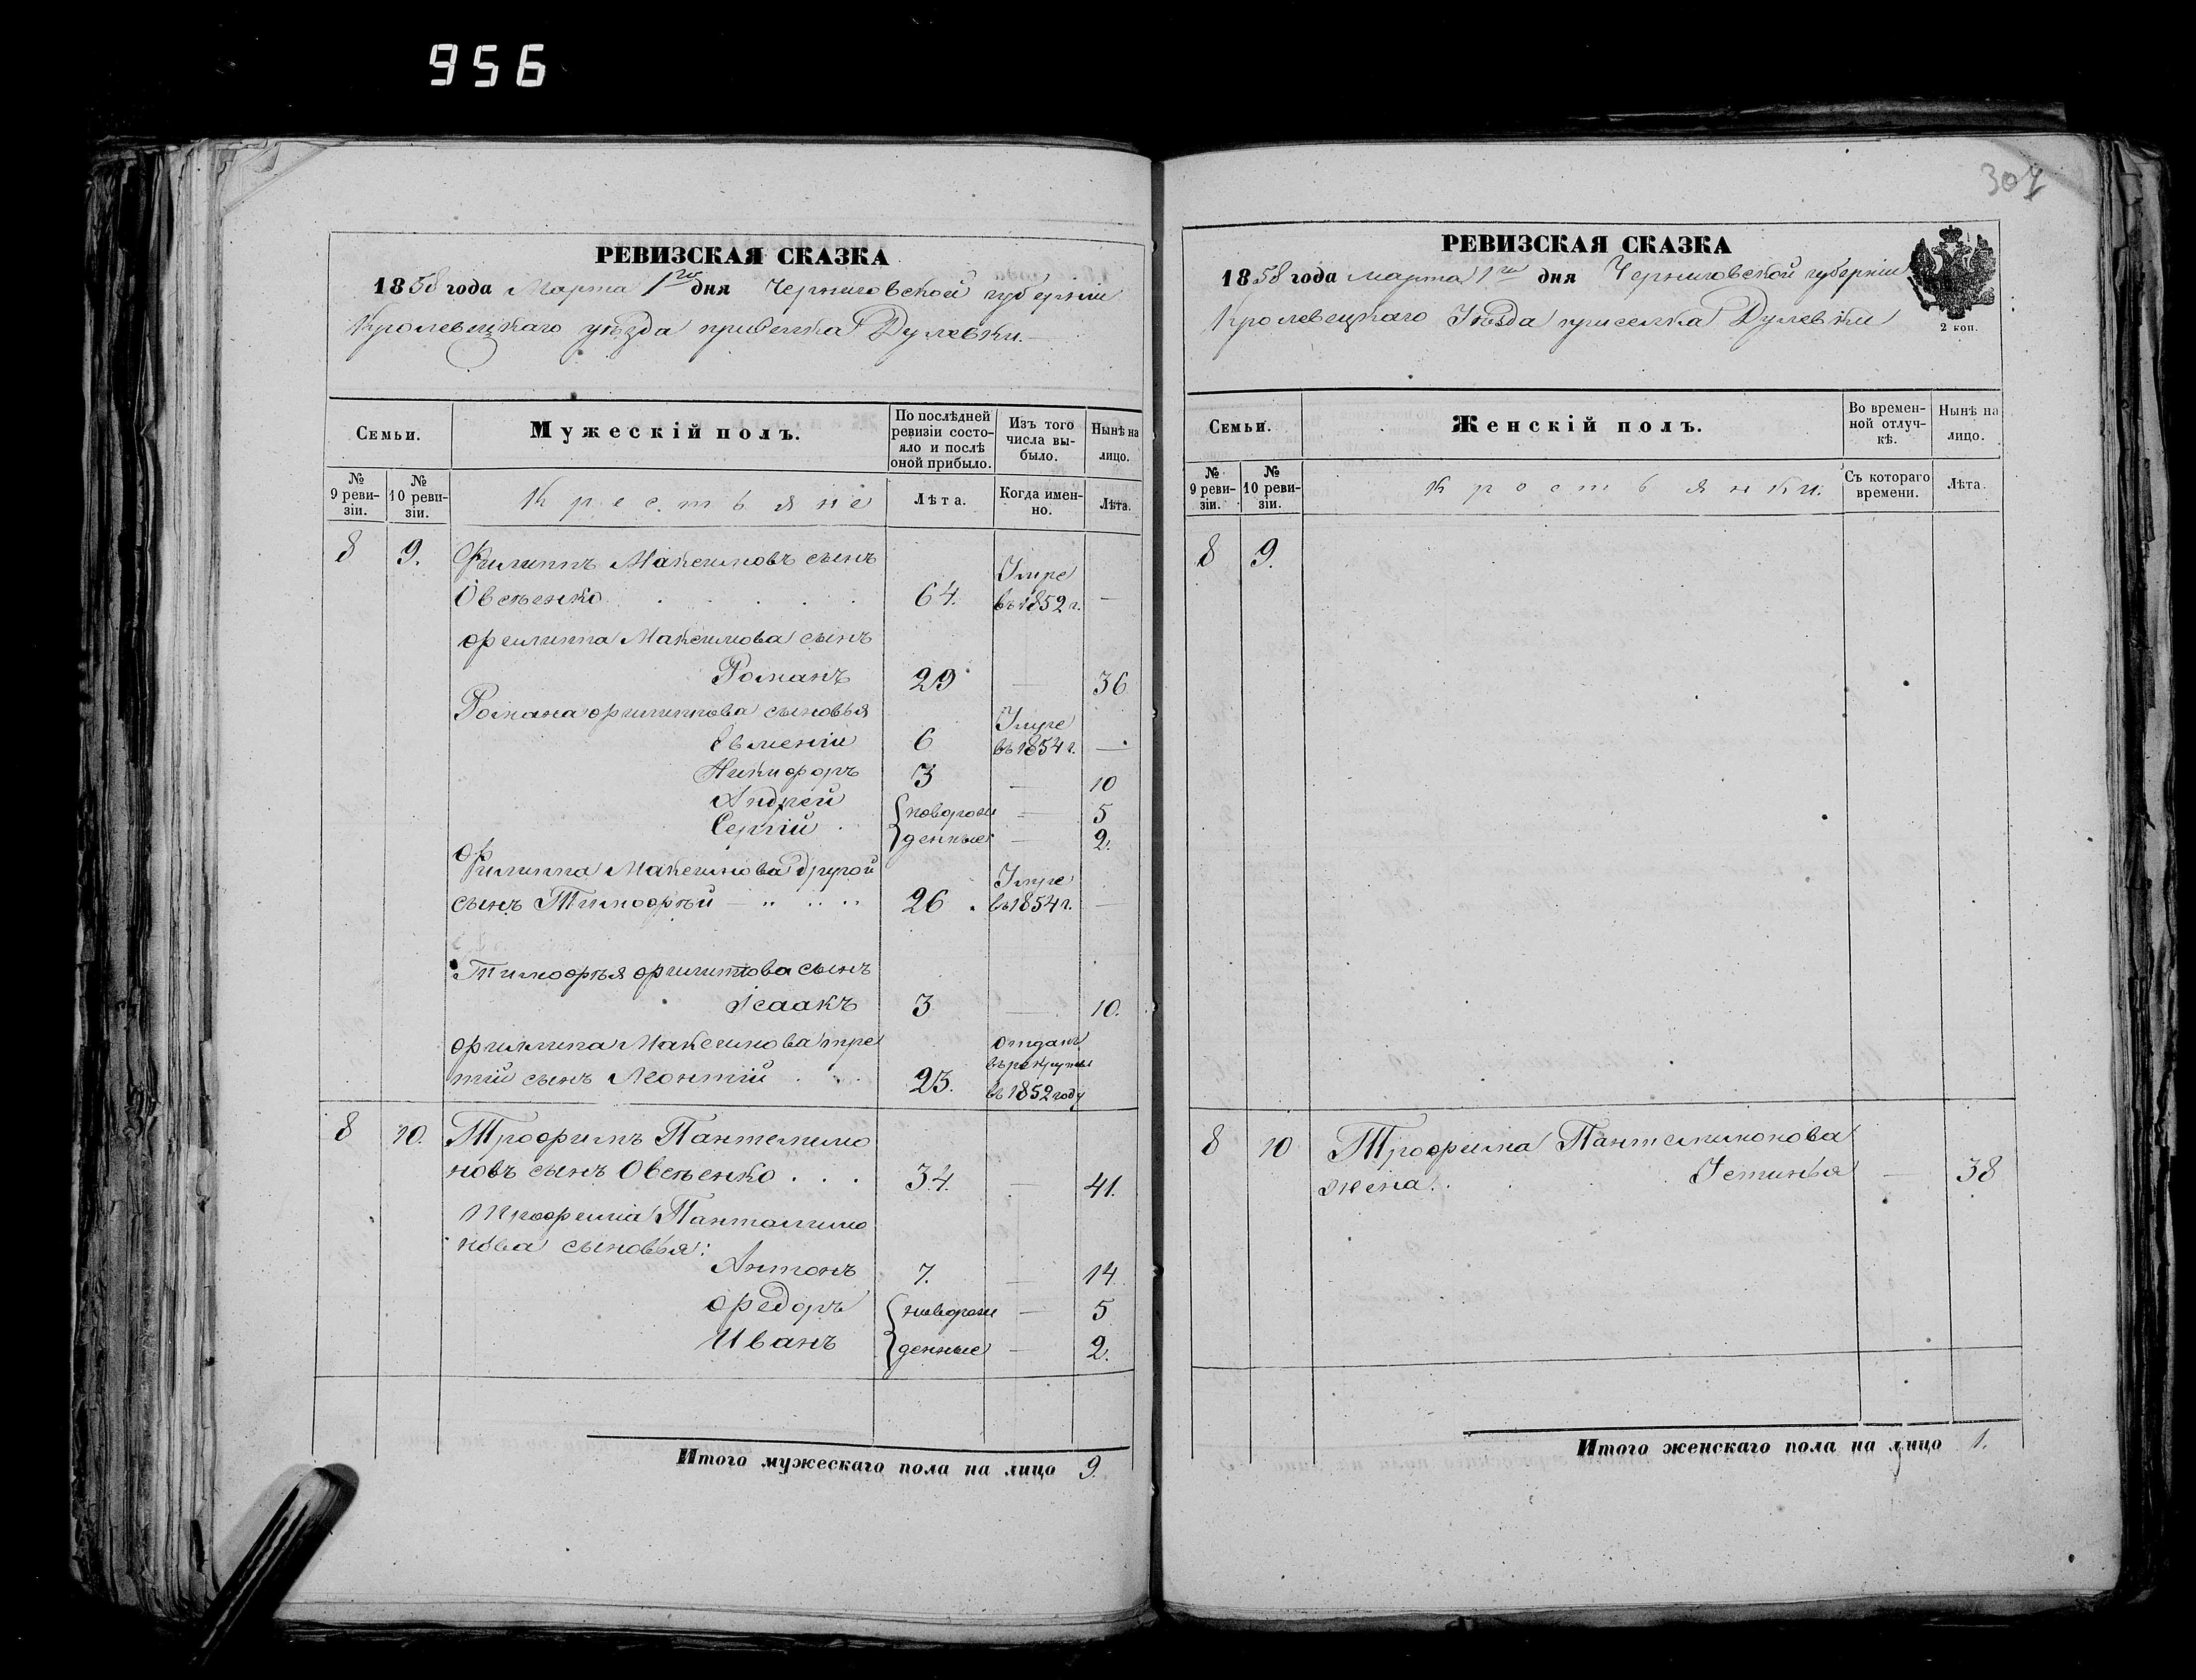 956
307
РЕВИЗСКАЯ СКАЗКА
1858 года Марта 1го дня Черниговской губерніи
Кролевецкаго уѣзда приселка Дулевки.
Семьи.
Мужескій полъ.
По послѣдней ревизіи состояло и послѣ оной прибыло.
Изъ того числа выбыло.
Нынѣ на лицо.
№ 9 ревизіи.
№ 10 ревизіи.
Крестьяне
Лѣта.
Когда именно.
Лѣта.
8 9. Филиппъ Максимовъ сынъ
Овсѣенко 64. Умре въ 1852 г. —
Филиппа Максимова сынъ
Романъ 29 — 36
Романа Филиппова сыновья
Евменій 6 Умре въ 1854 г. —
Никифоръ 3 — 10
Андрей новорож — 5
Сергій денные — 2.
Филиппа Максимова другой
сынъ Тимофѣй 26. Умре въ 1854 г. —
Тимофѣя Филиппова сынъ
Исаакъ 3 — 10.
Филиппа Максимова тре
тій сынъ Леонтій 23. отданъ въ рекруты въ 1852 году
8 10. Трофимъ Пантелимо
новъ сынъ Овсѣенко . . . 34. — 41.
Трофима Пантелимо
нова сыновья:
Антонъ 7. — 14
Федоръ новорож — 5
Иванъ денные — 2.
Итого мужескаго пола на лицо 9.
РЕВИЗСКАЯ СКАЗКА
1858 года марта 1го дня Черниговской губерніи
Кролевецкаго Уѣзда приселка Дулевки
2 коп.
Семьи.
Женскій полъ.
Во временной отлучкѣ.
Нынѣ на лицо.
№ 9 ревизіи.
№ 10 ревизіи.
Крестьянки.
Съ котораго времени.
Лѣта.
8 9.
8 10 Трофима Пантелимонова
жена. Устинья — 38
Итого женскаго пола на лицо 1.